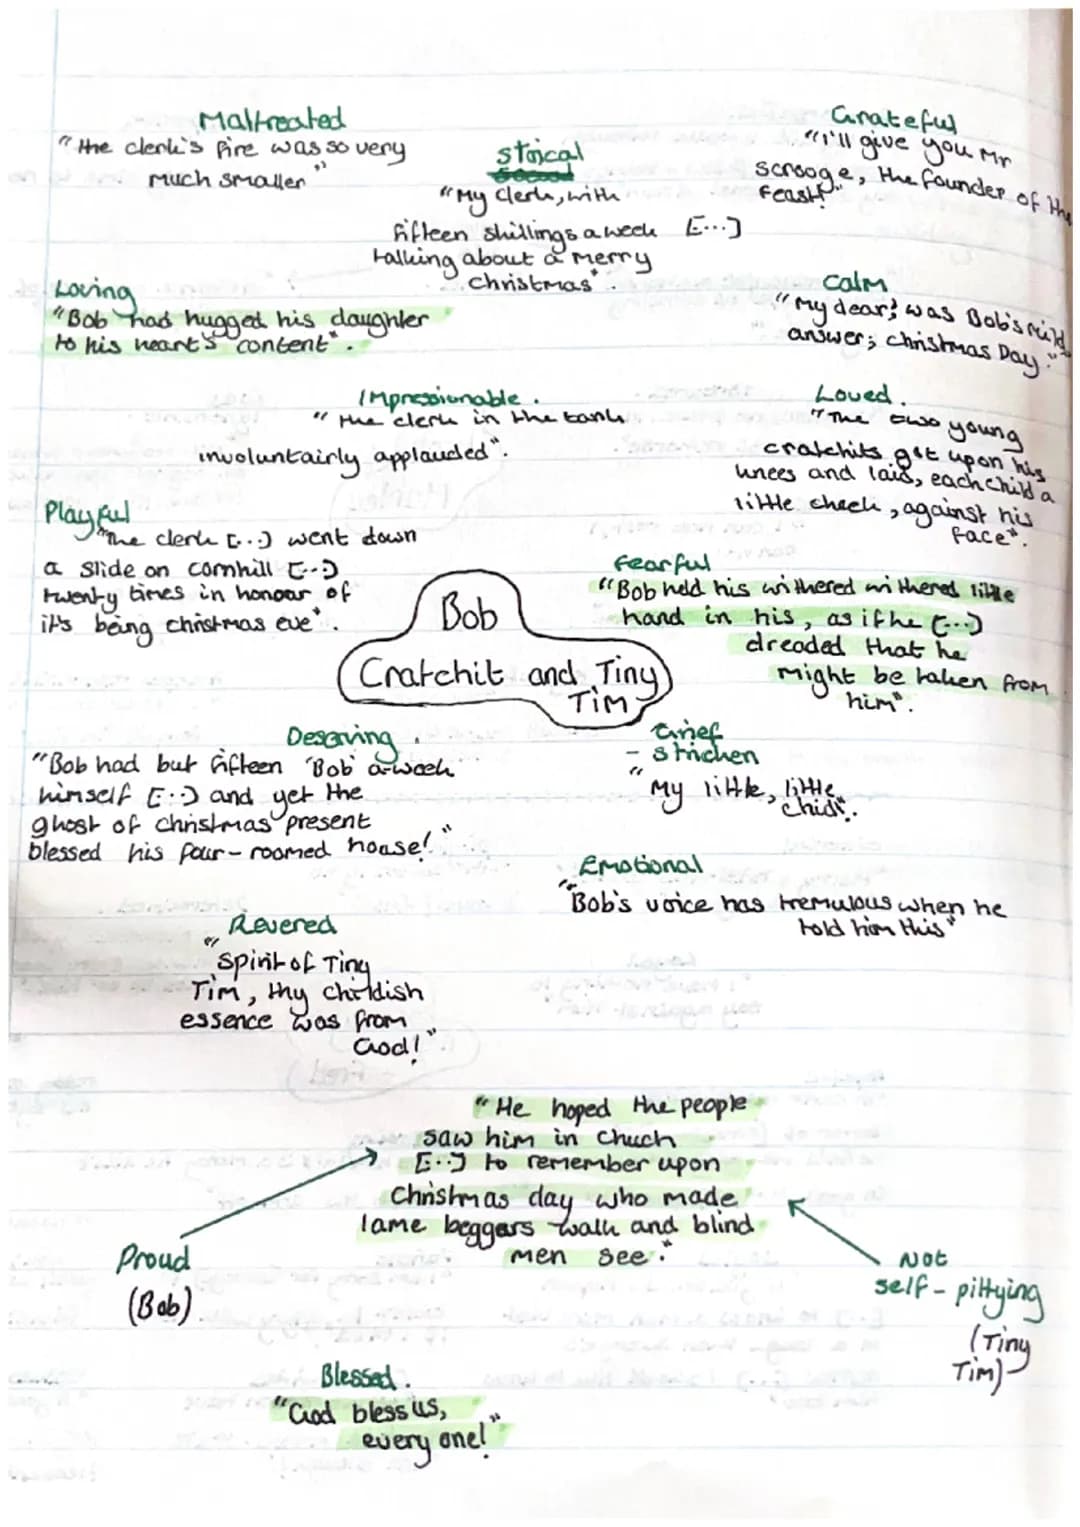 Maltreated
"the clerk's fire was so very
much smaller"
stoical
"My clerk, with
fifteen shillings a week [...]
talking about a merry
christmas".
Grateful
"I'll give you Mr
scrooge, the founder of the
feast!"
Loving
"Bob had hugged his daughter
to his heart's content".
Calm
"My dear,' was Bob's mild
answer; christmas Day."
Impressionable.
"the clerk in the tank
involuntairly applauded".
Loved.
"The two young
cratchits got upon his
knees and laid, each child a
little cheek, against his
face".
Playful
"The clerk [...] went down
a slide on cornhill [...]
twenty times in honour of
it's being christmas eve".
fearful
"Bob held his withered withered little
hand in his, as if he [...]
dreaded that he
might be taken from
him".
Bob
Cratchit and Tiny
Tim
Deserving.
"Bob had but fifteen 'Bob' a-week
himself [...] and yet the
ghost of christmas present
blessed his four-roomed house!"
Grief
- stricken
"My little, little
child".
Emotional.
"Bob's voice was tremulous when he
told him this"
Revered
"spirit of Tiny
Tim, thy childish
essence was from
God!"
"He hoped the people
saw him in chuch
[...] to remember upon
Christmas day who made
lame beggars walk and blind
men see".
Proud
(Bob)
Not
self-pittying
(Tiny
Tim)
Blessed.
"God bless us,
every one!"